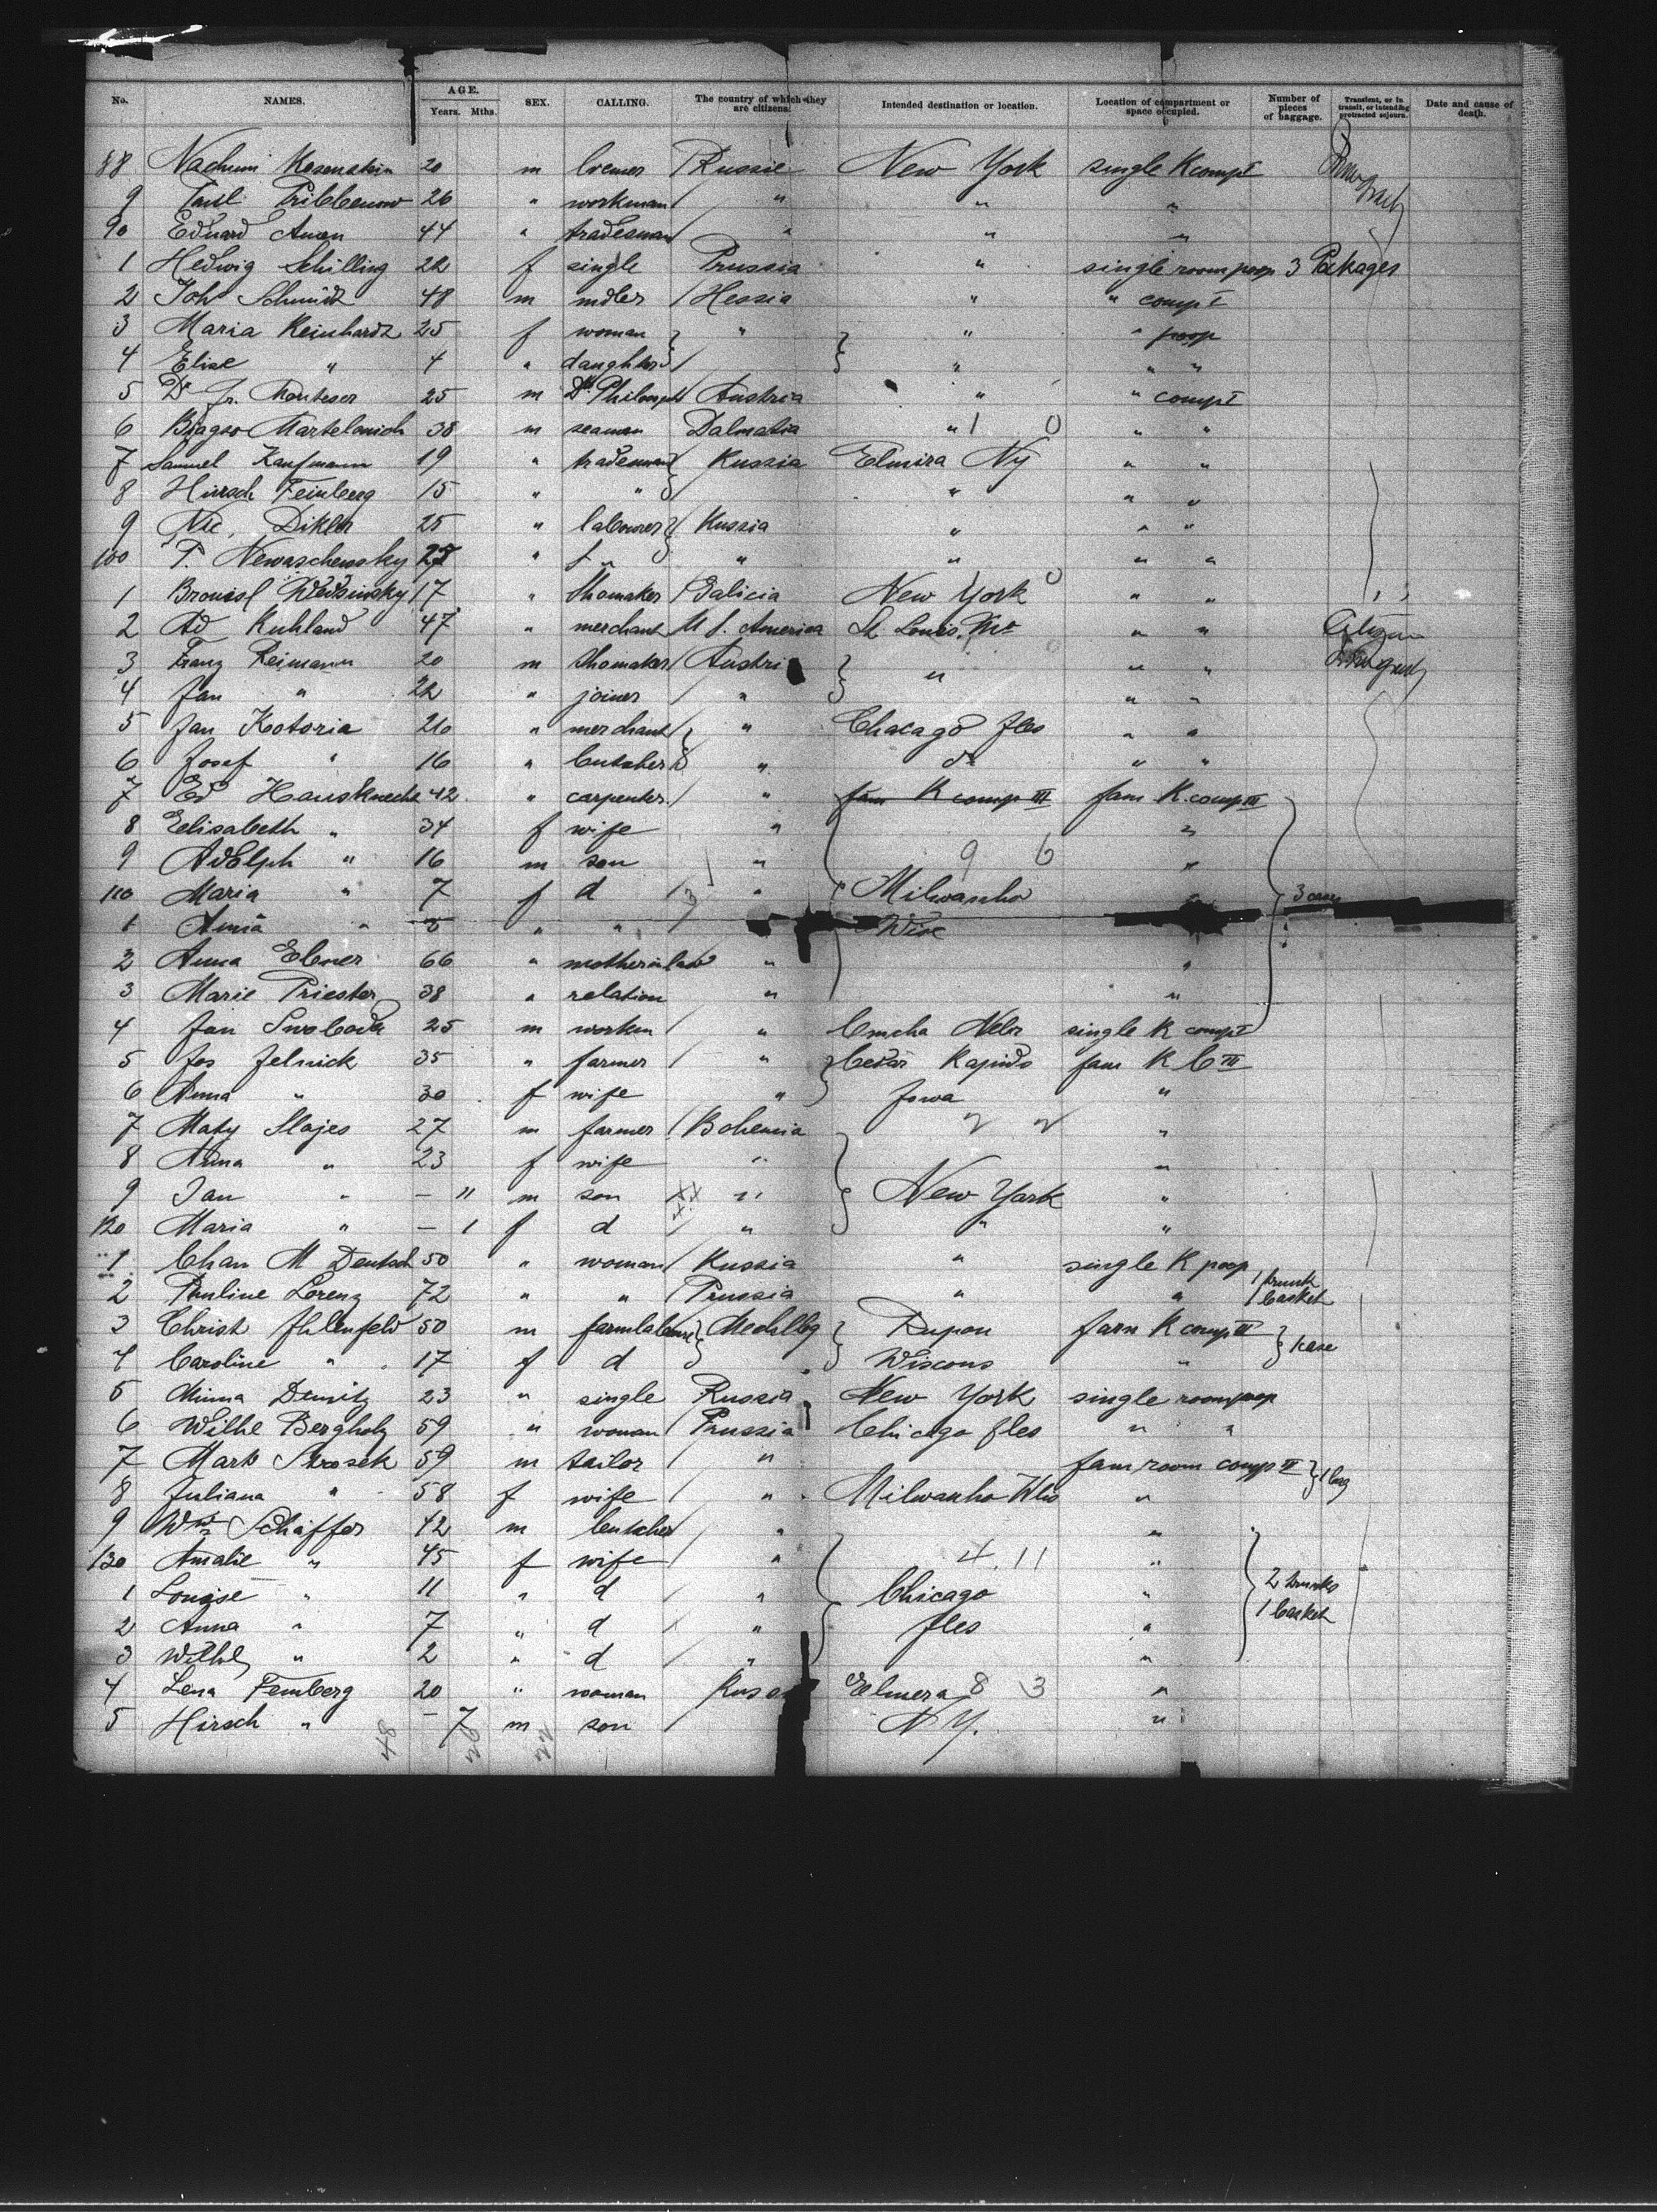 No. NAMES. AGE. Years. Mths. SEX. CALLING. The country of which they are citizens. Intended destination or location. Location of compartment or space occupied. Number of pieces of baggage. Transient, or in transit, or intending protracted sojourn. Date and cause of death.
88 20 m Russie New York single K comp I
9 26 " workman " " "
90 Eduard 44 " tradesman " " "
1 Hedwig Schilling 22 f single Prussia " single room poop 3 Packages
2 Joh Schmidt 48 m Hessia " " comp I
3 Maria Reinhardt 25 f woman " " " poop
4 Elise " 4 " daughter " " "
5 Dr. 25 m Austria " " comp I
6 38 m seaman Dalmatia " 1 0 " "
7 Samuel Kaufmann 19 " tradesman Russia Elmira Ny " "
8 Hirsch Feinberg 15 " " " " "
9 Nic. Dikler 25 " labourer Russia " " "
100 T. Newaschewsky " " " " "
1 17 " Shomaker Galicia New York " "
2 Ad Kuhland 47 " merchant U S. America St Louis, Mo " " Citizen
3 Franz Reimann 20 m Shomaker Austri " " "
4 Jan " 22 " joiner " " "
5 Jan Kotoria 20 " merchant " Chacago Ills " "
6 Josef " 16 " butcher " do " "
7 Ed Hausknecht 42 " carpenter " fam K comp III fam K. comp III
8 Eelisabeth " 34 f wife " "
9 Adolph " 16 m son " 9 6 "
110 Maria " 7 f d " Milwauho " 3 case
1 " " " Wisc
2 Anna Ebner 66 " mother in law " "
3 Marie Priester 38 " relation " "
4 Jan Swoboda 25 m " Omcha Nebr single K comp I
5 Jos Jelnick 35 " farmer " Cedar Rapids fam K C III
6 Anna " 30 f wife " Jowa "
7 Maty Slajes 27 m farmer Bohemia "
8 Anna " 23 f wife " "
9 Jan " — 11 m son " New York "
120 Maria " — 1 f d " " "
1 Chan M Deutsch 50 " woman Russia " single K poop
2 Pauline Lorenz 72 " " Prussia " " 1 trunk 1 basket
3 Christ Ihlenfeld 50 m Mecklbg Rupon fam K comp III 1 case
4 Caroline " 17 f d " Wiscons "
5 Minna Demitz 23 " single Russia New York single room poop
6 Wilhe Bergholz 59 " woman Prussia Chicago Jles " "
7 Mark 59 m tailor " fam room comp II 1 bag
8 Juliana " 58 f wife " Milwauho "
9 Wm Schäffer 42 m butcher " "
130 Amalie " 45 f wife " 4. 11 "
1 Louise " 11 " d " Chicago " 2 trunks
2 Anna " 7 " d " Jles " 1 basket
3 Wilhe " 2 " d " "
4 Lena Feinberg 20 " woman Elmera 8 3 "
5 Hirsch " – 7 m son N Y. "
48